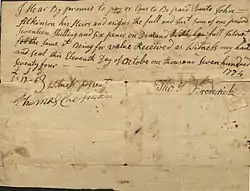 I Hear By promes to pay or Caus to Be paid Unto John
Atkinson his Heir and asigns the full and Just sum of one pound
Seventeen Shilling and six pence on Demand With Law full
for the same it Being for value Received as Witness my hand
and seal this Eleventh Day of Octobe on thousand Seven hundred
Seventy four 1774
Witness present
Thos Frederick
Thomas